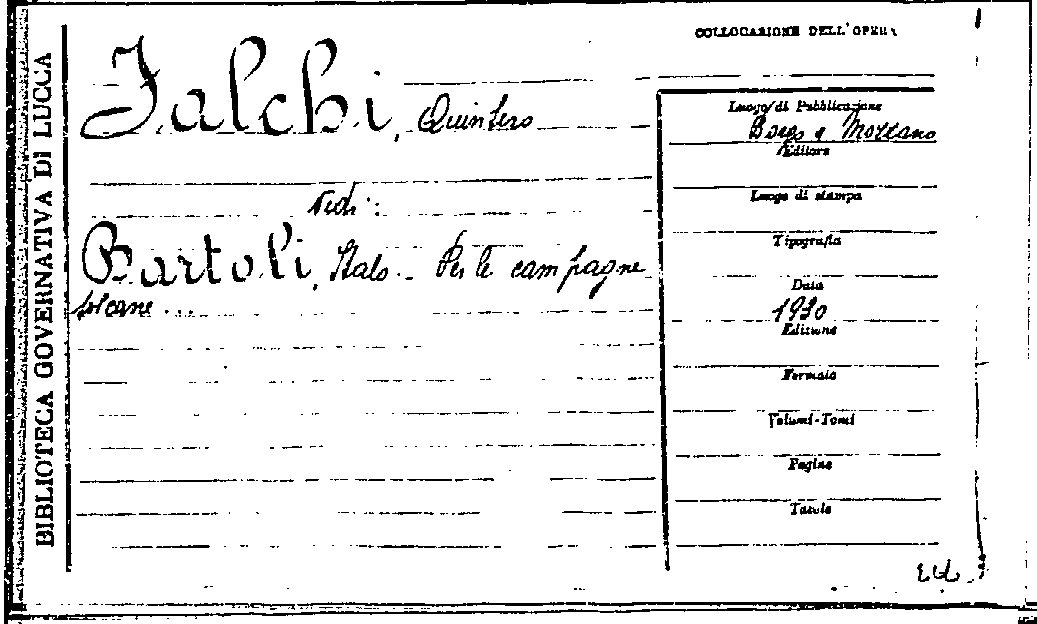 COLLOCAZIONE DELL'OPERA
BIBLIOTECA GOVERNATIVA DI LUCCA
Falchi, Quintero
Vedi:
Bartoli, Italo - Per le campagne
toscane ...
Luogo di Pubblicazione
Borgo a Mozzano
Editore
Luogo di stampa
Tipografia
Data
1930
Edizione
Formato
Volumi-Tomi
Pagine
Tavole